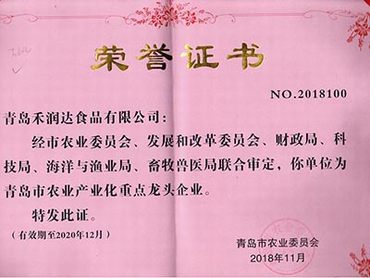 荣誉证书
NO.2018100
青岛禾润达食品有限公司：
经市农业委员会、发展和改革委员会、财政局、科
技局、海洋与渔业局、畜牧兽医局联合审定，你单位为
青岛市农业产业化重点龙头企业。
特发此证。
（有效期至2020年12月）
青岛市农业委员会
2018年11月